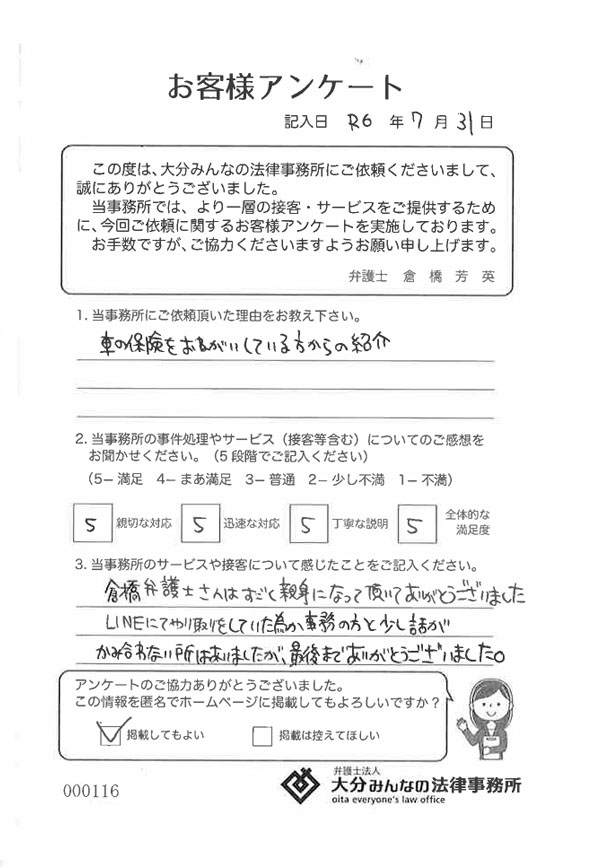 お客様アンケート
記入日 R6 年 7 月 31 日
この度は、大分みんなの法律事務所にご依頼くださいまして、
誠にありがとうございました。
当事務所では、より一層の接客・サービスをご提供するため
に、今回ご依頼に関するお客様アンケートを実施しております。
お手数ですが、ご協力くださいますようお願い申し上げます。
弁護士 倉橋芳英
1. 当事務所にご依頼頂いた理由をお教え下さい。
車の保険をおねがいしている方からの紹介
2. 当事務所の事件処理やサービス（接客等含む）についてのご感想を
お聞かせください。（5段階でご記入ください）
（5− 満足 4− まあ満足 3− 普通 2− 少し不満 1− 不満）
5 親切な対応 5 迅速な対応 5 丁寧な説明 5 全体的な
満足度
3. 当事務所のサービスや接客について感じたことをご記入ください。
倉橋弁護士さんはすごく親身になって頂いてありがとうございました
LINEにてやり取りをしていた為か事務の方と少し話が
かみ合わない所はありましたが、最後までありがとうございました。
アンケートのご協力ありがとうございました。
この情報を匿名でホームページに掲載してもよろしいですか？
掲載してもよい 掲載は控えてほしい
000116
弁護士法人
大分みんなの法律事務所
oita everyone's law office